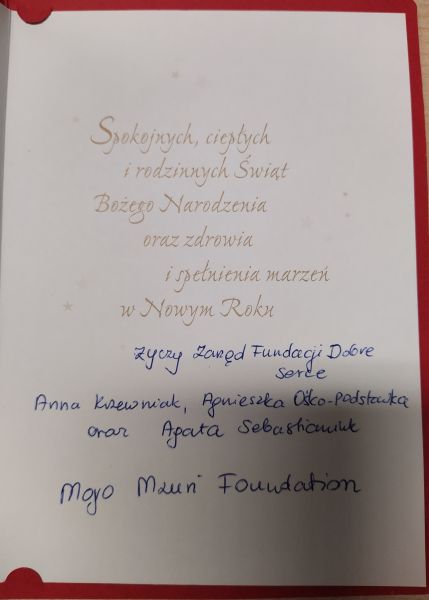 Spokojnych, ciepłych
i rodzinnych Świąt
Bożego Narodzenia
oraz zdrowia
i spełnienia marzeń
w Nowym Roku
życzy Zarząd Fundacji Dobre
Serce
Anna Krzewniak, Agnieszka Ośko-Podstawka
oraz Agata Sebastianiuk
Moyo Mzuri Foundation